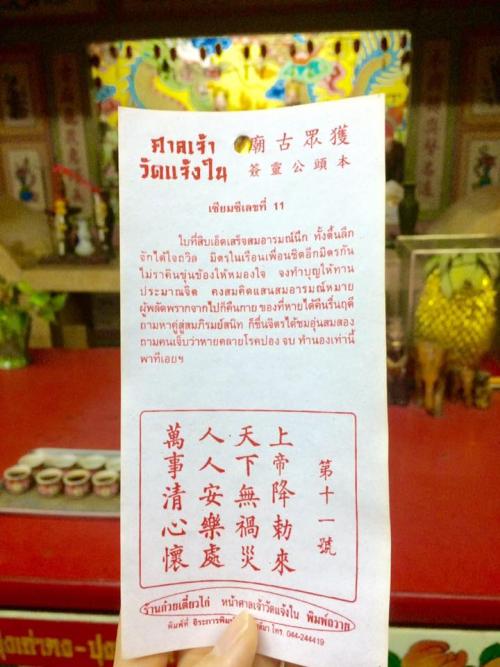 ศาลเจ้า
วัดแจ้งใน
廟古眾獲
簽靈公頭本
เซียมซีเลขที่ 11
ใบที่สิบเอ็ดเสร็จสมอารมณ์นึก ทั้งตื้นลึก
จักได้ใจถวิล มิตรในเรือนเพื่อนชิดอีกมิตรกัน
ไม่ราคินขุ่นข้องให้หมองใจ จงทำบุญให้ทาน
ประมาณจิต คงสมคิดแสนสมอารมณ์หมาย
ผู้พลัดพรากจากไปก็คืนกาย ของที่หายได้คืนรื่นฤดี
ถามหาคู่สู่สมภิรมย์สนิท ก็ชื่นจิตรได้ชมอุ่นสมสอง
ถามคนเจ็บว่าหายคลายโรคปอง จบ ทำนองเท่านี้
พาทีเอยฯ
第十一號
上帝降勅來
天下無禍災
人人安樂處
萬事清心懷
ร้านก๋วยเตี๋ยวไก่ หน้าศาลเจ้าวัดแจ้งใน พิมพ์ถวาย
พิมพ์ที่ โทร. 044-244419